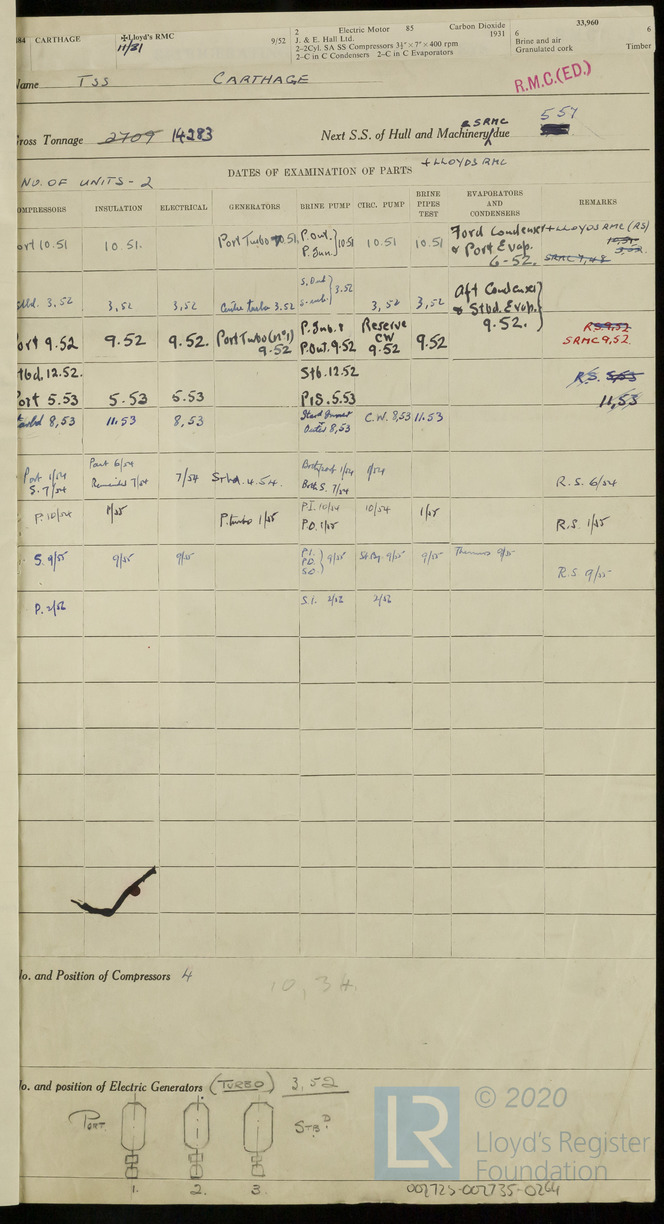 484 CARTHAGE ✠Lloyd's RMC 9/52 2 Electric Motor 85 Carbon Dioxide 33,960
11/31 J. & E. Hall Ltd. 1931 6 6
2–2Cyl. SA SS Compressors 3½" × 7" × 400 rpm Brine and air
2–C in C Condensers 2–C in C Evaporators Granulated cork Timber
Name TSS CARTHAGE R.M.C.(ED.)
Gross Tonnage 2709 14283 Next S.S. of Hull and Machinery & SRMC due 5 57
+ LLOYDS RMC
NO. OF UNITS - 2 DATES OF EXAMINATION OF PARTS
COMPRESSORS INSULATION ELECTRICAL GENERATORS BRINE PUMP CIRC. PUMP BRINE PIPES TEST EVAPORATORS AND CONDENSERS REMARKS
Port 10.51 10.51. Port Turbo 10.51, P.Out. P.Inn.} 10.51 10.51 10.51 Ford Condenser & Port Evap. 6-52. + LLOYDS RMC (RS)
Stbd. 3.52 3,52 3,52 Centre turbo 3.52 3.52 3,52 3,52 Aft Condenser & Stbd. Evap. 9.52.}
Port 9.52 9.52 9.52. Port Turbo (No 1) 9-52 P.Inb. & P.Out. 9.52 Reserve CW 9.52 9.52 RS 9,52
SRMC 9,52.
Stbd. 12.52. Stb. 12.52 R.S. 5,53
Port 5.53 5.53 5.53 P&S. 5.53 11,53
Starbd 8,53 11.53 8,53 Outer 8,53 C.W. 8,53 11.53
Port 1/54 Port 6/54 7/54 Stbd. 4.54. Both port 1/54 1/54 R.S. 6/54
S. 7/54 Remainder 7/54 Both S. 7/54
P. 10/54 1/55 P. turbo 1/55 P.I. 10/54 10/54 1/55 R.S. 1/55
P.O. 1/55
S. 9/55 9/55 9/55 P.I. P.O. S.O.} 9/55 St.By. 9/55 9/55 9/55 R.S 9/55
P. 2/56 S.I. 2/56 2/56
No. and Position of Compressors 4
10,34.
No. and position of Electric Generators (TURBO) 3,52
PORT. STBD
1. 2. 3.
LR © 2020
Lloyd's Register
Foundation
002725-002735-0264